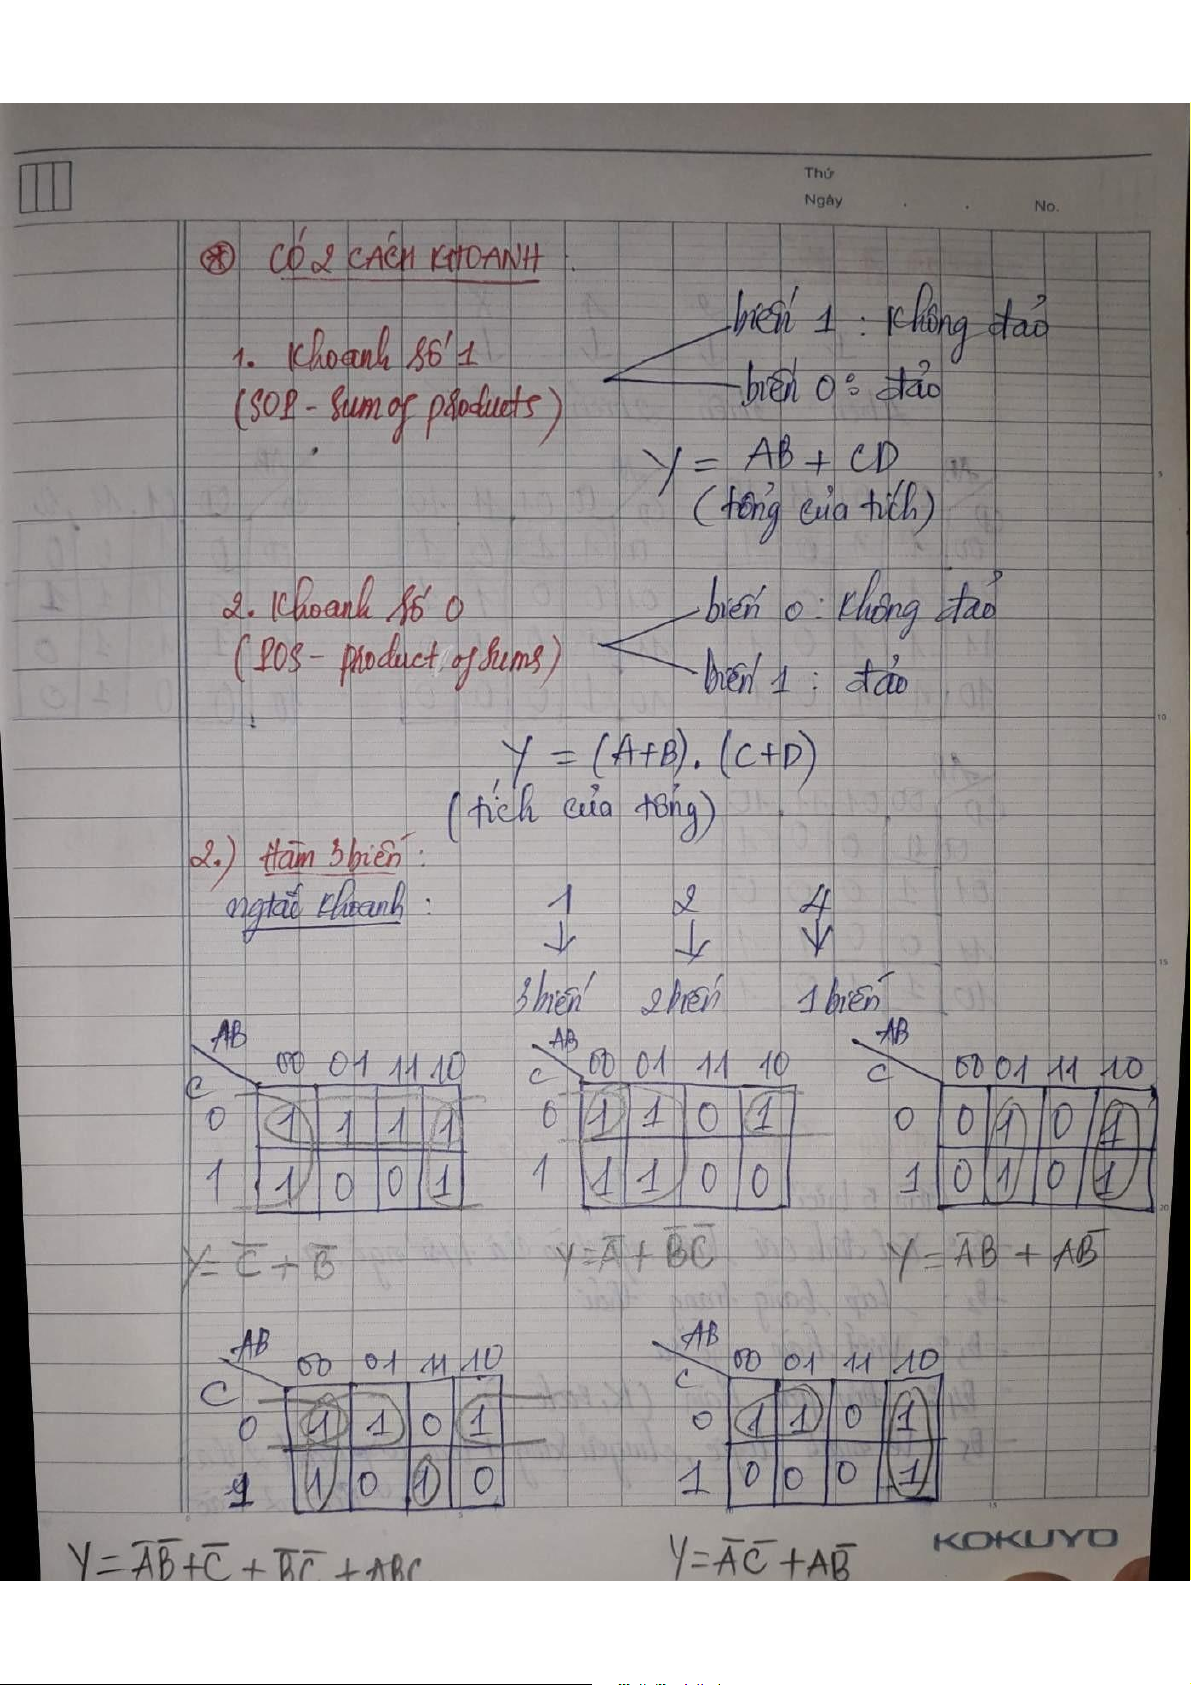 Thứ
Ngày . . No.
* CÓ 2 CÁCH KHOANH
1. Khoanh số 1
(SOP - Sum of products)
biến 1 : Không đảo
biến 0 : đảo
Y = AB + CD
(tổng của tích)
2. Khoanh số 0
(POS - product of sums)
biến 0 : Không đảo
biến 1 : đảo
Y = (A+B). (C+D)
(tích của tổng)
2.) Hàm 3 biến :
ngtắc khoanh : 1 2 4
↓ ↓ ↓
3 biến 2 biến 1 biến
AB
C 00 01 11 10
0 1 1 1 1
1 1 0 0 1
Y = C̅ + B̅
AB
C 00 01 11 10
0 1 1 0 1
1 1 1 0 0
Y = A̅ + B̅C̅
AB
C 00 01 11 10
0 0 1 0 1
1 0 1 0 1
Y = A̅B + AB̅
AB
C 00 01 11 10
0 1 1 0 1
1 1 0 1 0
Y = A̅B̅ + C̅ + B̅C̅ + ABC
AB
C 00 01 11 10
0 1 1 0 1
1 0 0 0 1
Y = A̅C̅ + AB̅
KOKUYO